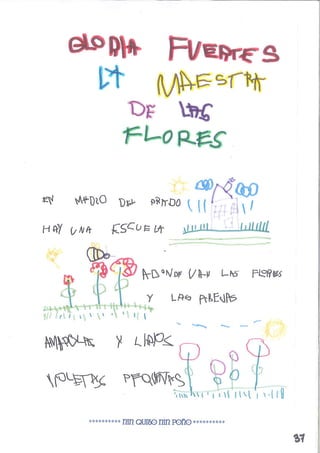 GLORIA FUERTES
LA MAESTRA
DE LAS
FLORES
EN MEDIO DEL PRADO
HAY UNA ESCUELA
ADONDE VAN LAS FLORES
Y LAS
AMAPOLAS Y LIRIOS
VIOLETAS PEQUEÑAS
********** NIN QUIBO NIN POÑO **********
37